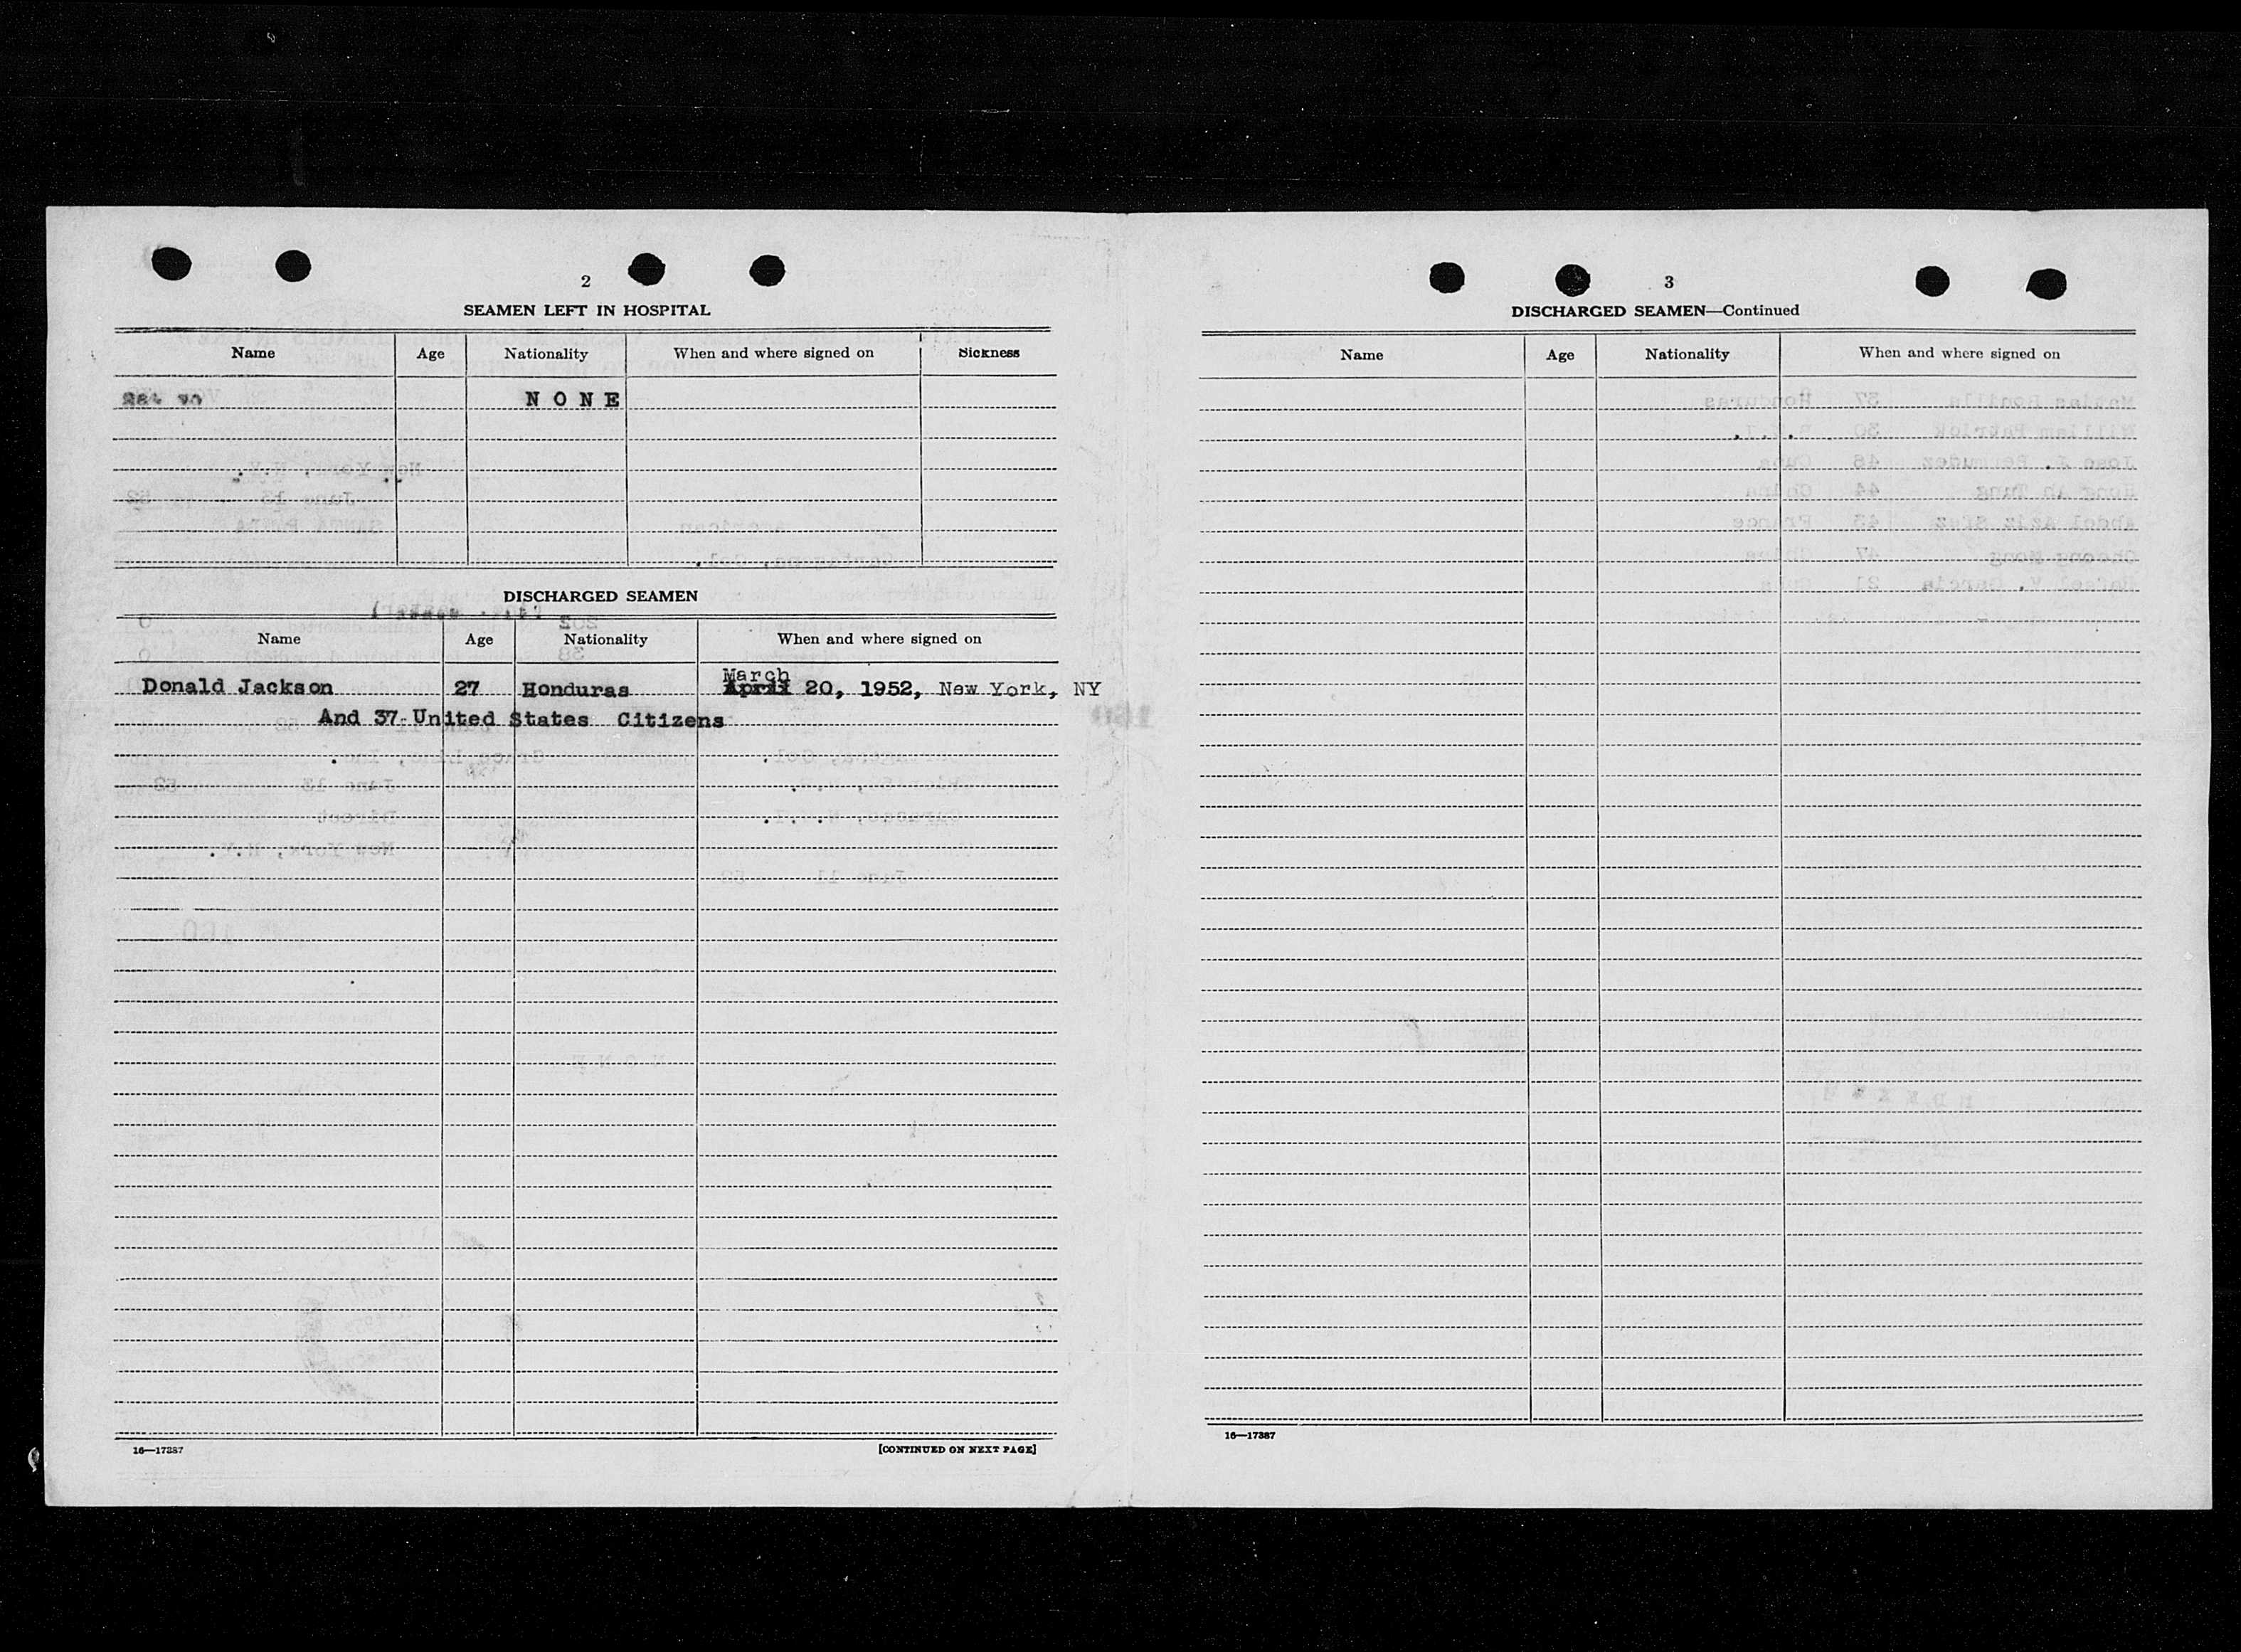 2
SEAMEN LEFT IN HOSPITAL
Name Age Nationality When and where signed on Sickness
N O N E
DISCHARGED SEAMEN
Name Age Nationality When and where signed on
March
Donald Jackson 27 Honduras April 20, 1952, New York, NY
And 37 United States Citizens
16—17387 [CONTINUED ON NEXT PAGE]
3
DISCHARGED SEAMEN—Continued
Name Age Nationality When and where signed on
16—17387